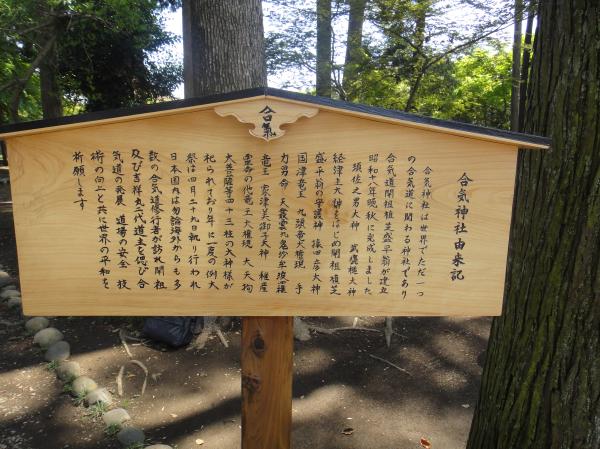 合氣
合気神社由来記
合気神社は世界でただ一つ
の合気道に関わる神社であり
合気道開祖植芝盛平翁が建立
昭和十八年晩秋に完成しました
須佐之男大神 武甕槌大神
経津主大神をはじめ開祖植芝
盛平翁の守護神 猿田彦大神
国津竜王 九頭竜大権現 手
力男命 天叢雲九鬼
竜王 家津美御子大神 植産
霊命の他竜王大権現 大天狗
大菩薩等四十三柱の大神様が
祀られており年に一度の例大
祭は四月二十九日執り行われ
日本国内は勿論海外からも多
数の合気道修行者が訪れ開祖
及び吉祥丸二代道主を偲び合
気道の発展 道場の安全 技
術の向上と共に世界の平和を
祈願します